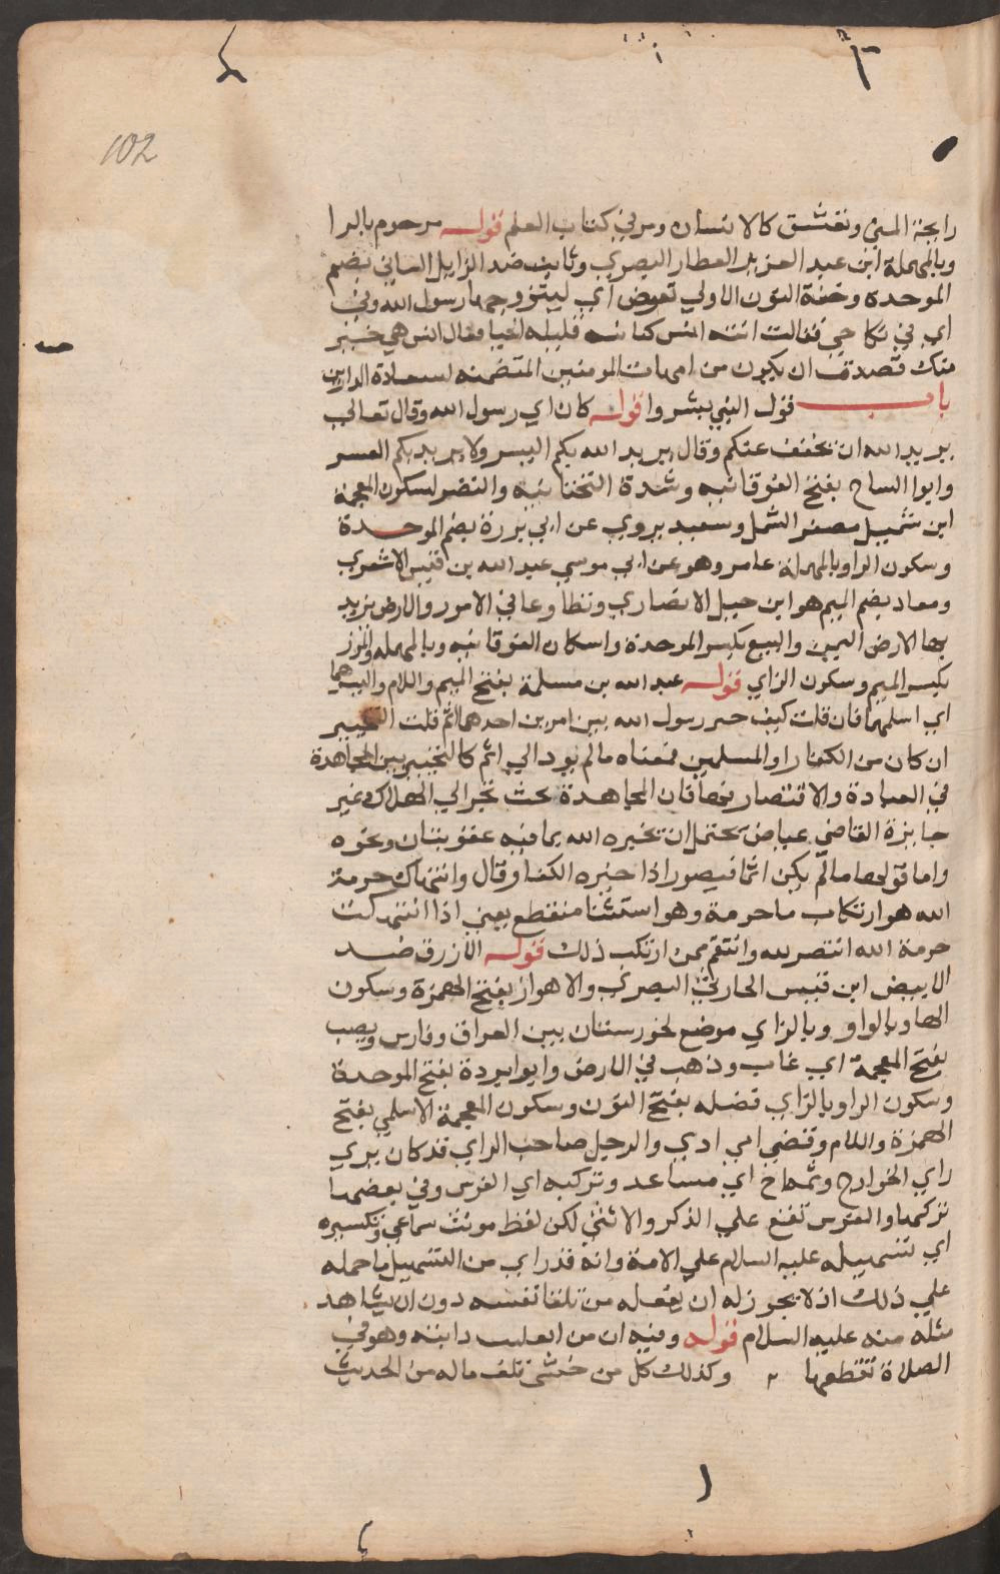 102
رايحة المني ونفتشق كالانسان ومر في كتاب العلم قوله مرحوم بالرا
وبالمهملة ابن عبد العزيز العطار البصري وثابت ضد الزايل البناني بضم
الموحدة وخفة النون الاولي تعرض اي ليتزوجها رسول الله وفي
اي في نكاحي فقالت ابنته انس كانت قليله الحيا فقال انس هي خير
منك تصدت ان يكون من امهات المومنين المتضمنه لسعادة الدارين
باب قول النبي يسروا قوله كان اي رسول الله وقال تعالي
يريد الله ان يخفف عنكم وقال يريد الله بكم اليسر ولا يريد بكم العسر
وابوا التياح بفتح الفوقانيه وشدة التحتانيه والنضر لسكون المعجمة
ابن شميل مصغر الشمل وسعيد يروي عن ابي بردة بضم الموحدة
وسكون الرا وبالمهملة عامر وهو عن ابي موسي عبد الله بن قيس الاشعري
ومعاد بضم الميم هو ابن جبل الانصاري وتطاوعا في الامور والارض يريد
بها الارض اليمن والبتع بكسر الموحدة واسكان الفوقانيه وبالمهمله والمزر
بكسر الميم وسكون الزاي قوله عبد الله بن مسلمة بفتح الميم واللام وايسرهما
اي اسلمهما فان قلت كيف خير رسول الله بين امرين احدهما اثم قلت التخيير
ان كان من الكفار او المسلمين فمعناه ما لم يود الي اثم كالتخيير بين المجاهدة
في العبادة والاقتصار فيها فان المجاهدة بحث تجر الي الهلاك غير
جايزة القاضي عياض يحتمل ان تخيره الله بما فيه عقوبتان ونحوه
واما قولها ما لم يكن اثما فيصور اذا خيره الكفار وقال وانتهاك حرمة
الله هو ارتكاب ما حرمه وهو استثنا منقطع يعني اذا انتهكت
حرمة الله انتصر لله وانتقم ممن ارتكب ذلك قوله الازرق ضد
الابيض ابن قيس الحارثي البصري والاهواز بفتح الهمزة وسكون
الها وبالواو وبالزاي موضع لخورستان بين العراق وفارس ونضب
بفتح المعجمة اي غاب وذهب في الارض وابوا بردة بفتح الموحدة
وسكون الرا وبالزاي فضله بفتح النون وسكون المعجمة الاسلمي بفتح
الهمزة واللام وقضي اي ادي والرجل صاحب الراي قد كان يري
راي الخوارج وتمراخ اي مساعد وتركبه اي الفرس وفي بعضها
تركها والفرس تقع علي الذكر والانثي لكن لفظ مونث سماعي وتيسيره
اي تسهيله عليه السلام علي الامة وانه قد راي من التسهيل ما حمله
علي ذلك اذ لا يجوز له ان يفعله من تلقا نفسه دون ان يشاهد
مثله منه عليه السلام قوله وفيه ان من انفلت دابته وهو في
الصلاة تقطعها وكذلك كل من خشي تلف ماله من الحديث